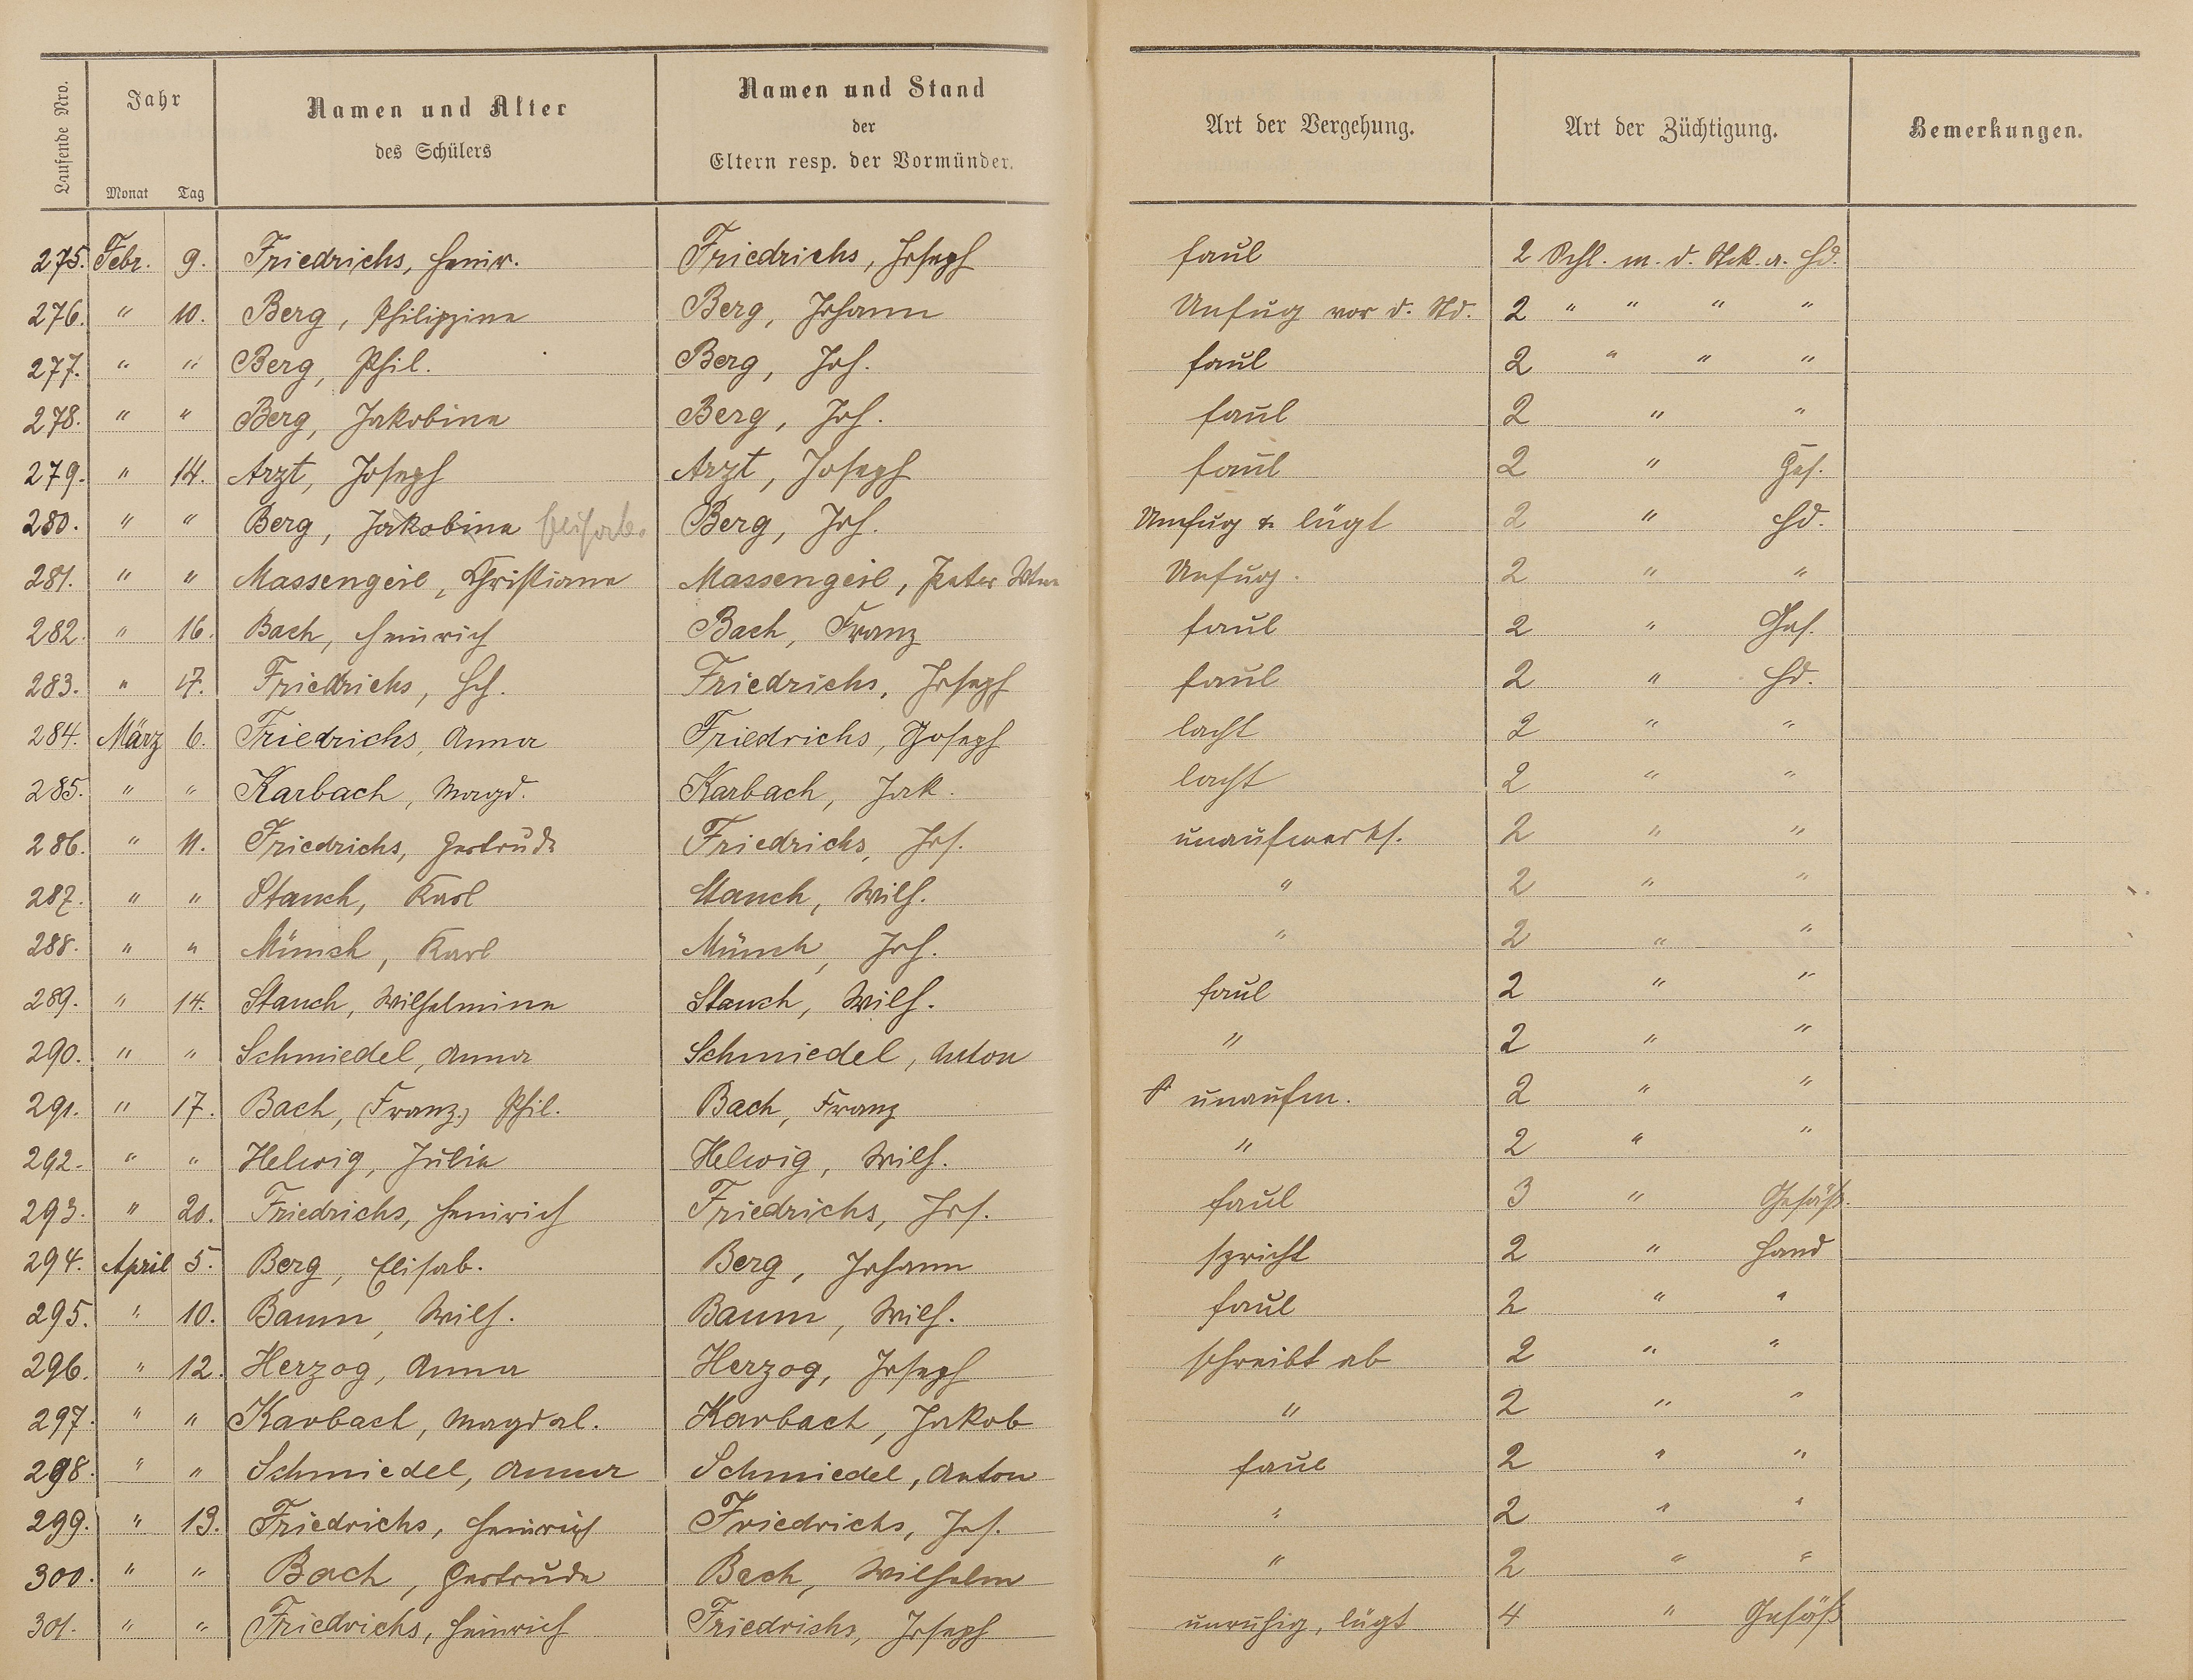 Laufende Nro. Jahr Monat Tag Namen und Alter des Schülers Namen und Stand der Eltern resp. der Vormünder. Art der Vergehung. Art der Züchtigung. Bemerkungen.
275. Febr. 9. Friedrichs, Heinr. Friedrichs, Joseph faul 2 Schl. m. d. Stck. a. Hd.
276. " 10. Berg, Philippine Berg, Johann Unfug vor d. Std. 2 " " " "
277. " " Berg, Phil. Berg, Joh. faul 2 " " "
278. " " Berg, Jakobine Berg, Joh. faul 2 " "
279. " 14. Arzt, Joseph Arzt, Joseph faul 2 " Ges.
280. " " Berg, Jakobine Elisab. Berg, Joh. Unfug & lügt 2 " Hd.
281. " " Massengeil, Christiane Massengeil, Peter Wtw. Unfug. 2 " "
282. " 16. Bach, Heinrich Bach, Franz faul 2 " Ges.
283. " 17. Friedrichs, Hch. Friedrichs, Joseph faul 2 " Hd.
284. März 6. Friedrichs, Anna Friedrichs, Joseph lacht 2 " "
285. " " Karbach, Magd. Karbach, Jak. lacht 2 " "
286. " 11. Friedrichs, Gertrude Friedrichs, Jos. unaufmerks. 2 " "
287. " " Stauch, Karl Stauch, Wilh. " 2 " "
288. " " Münch, Karl Münch, Joh. " 2 " "
289. " 14. Stauch, Wilhelmine Stauch, Wilh. faul 2 " "
290. " " Schmiedel, Anna Schmiedel, Anton " 2 " "
291. " 17. Bach, (Franz) Phil. Bach, Franz unaufm. 2 " "
292. " " Helwig, Julie Helwig, Wilh. " 2 " "
293. " 20. Friedrichs, Heinrich Friedrichs, Jos. faul 3 " Gesäß.
294. April 5. Berg, Elisab. Berg, Johann spricht 2 " Hand
295. " 10. Baum, Wilh. Baum, Wilh. faul 2 " "
296. " 12. Herzog, Anna Herzog, Joseph schreibt ab 2 " "
297. " " Karbach, Magdal. Karbach, Jakob " 2 " "
298. " " Schmiedel, Anna Schmiedel, Anton faul 2 " "
299. " 13. Friedrichs, Heinrich Friedrichs, Jos. " 2 " "
300. " " Bach, Gertrude Bach, Wilhelm " 2 " "
301. " " Friedrichs, Heinrich Friedrichs, Joseph unruhig, lügt 4 " Gesäß